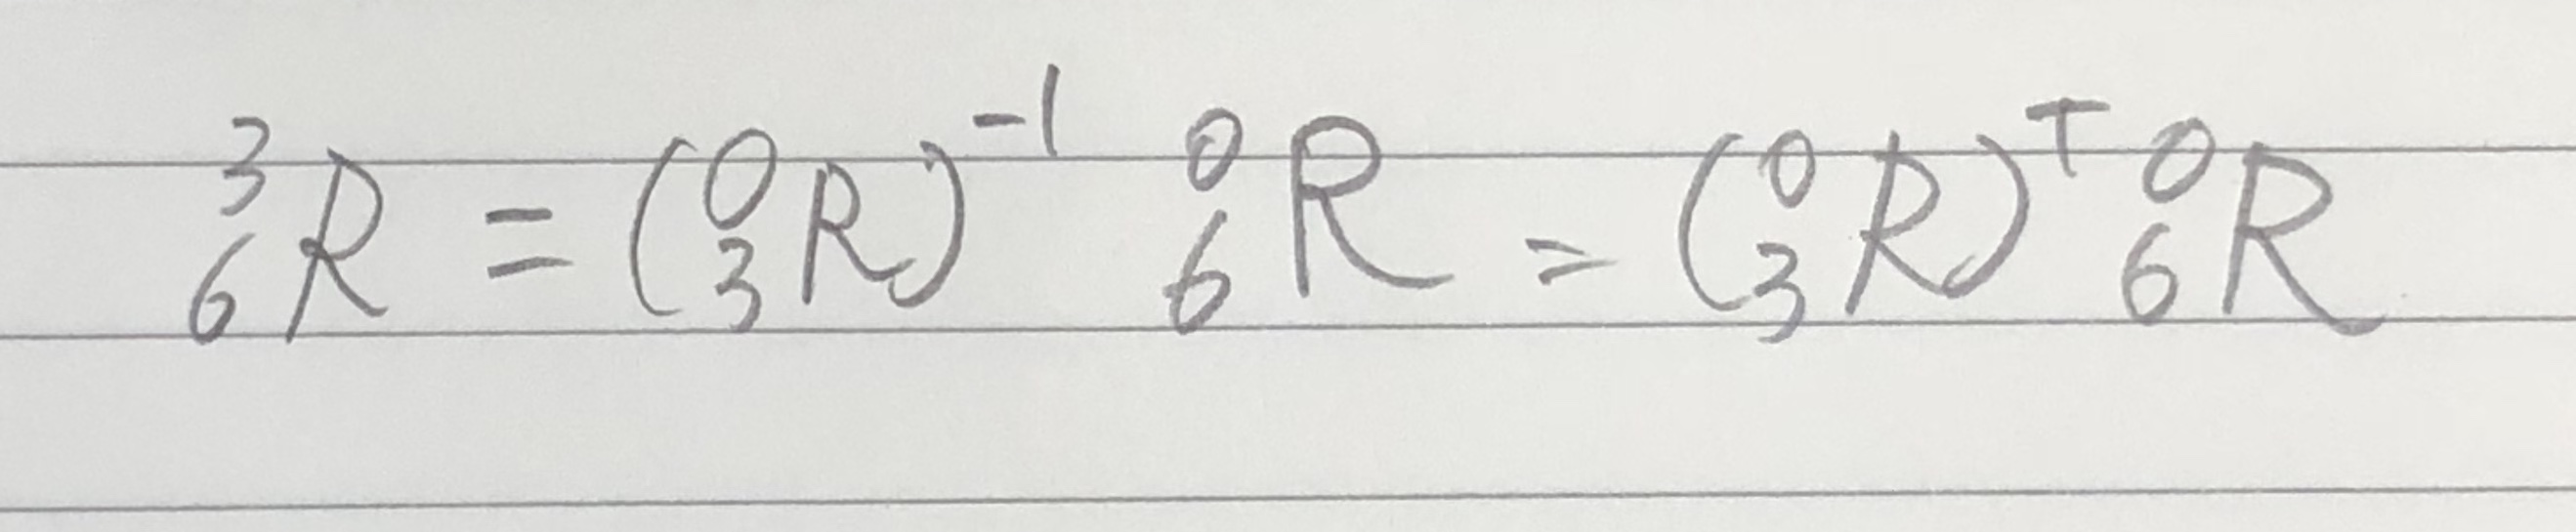 $^{3}_{6}R = (^{0}_{3}R)^{-1} \, ^{0}_{6}R = (^{0}_{3}R)^{T} \, ^{0}_{6}R$